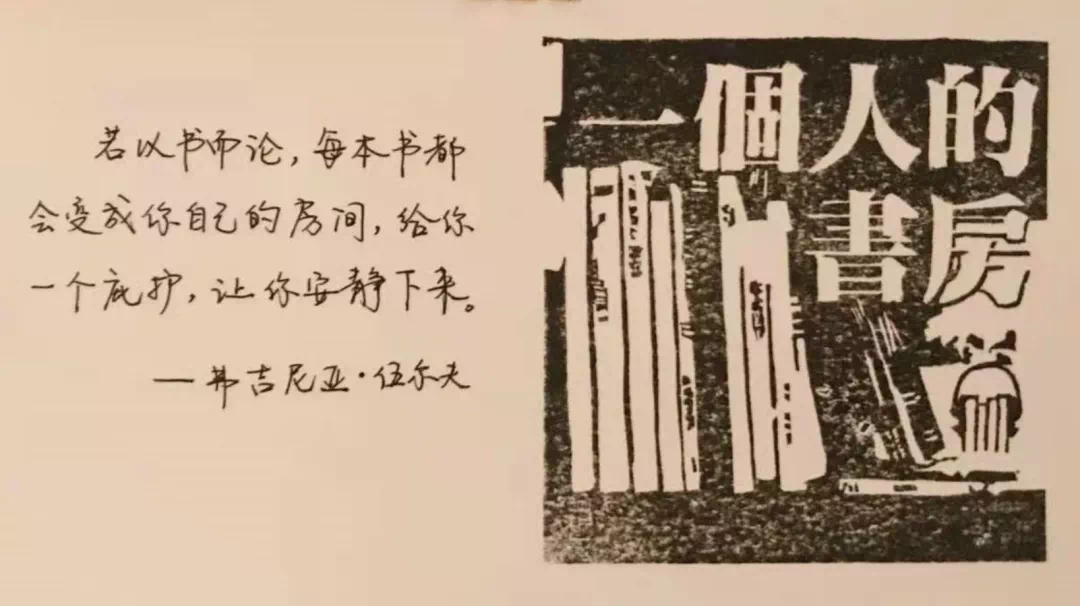 若以书而论，每本书都
会变成你自己的房间，给你
一个庇护，让你安静下来。
—弗吉尼亚·伍尔夫
一個人的
書房